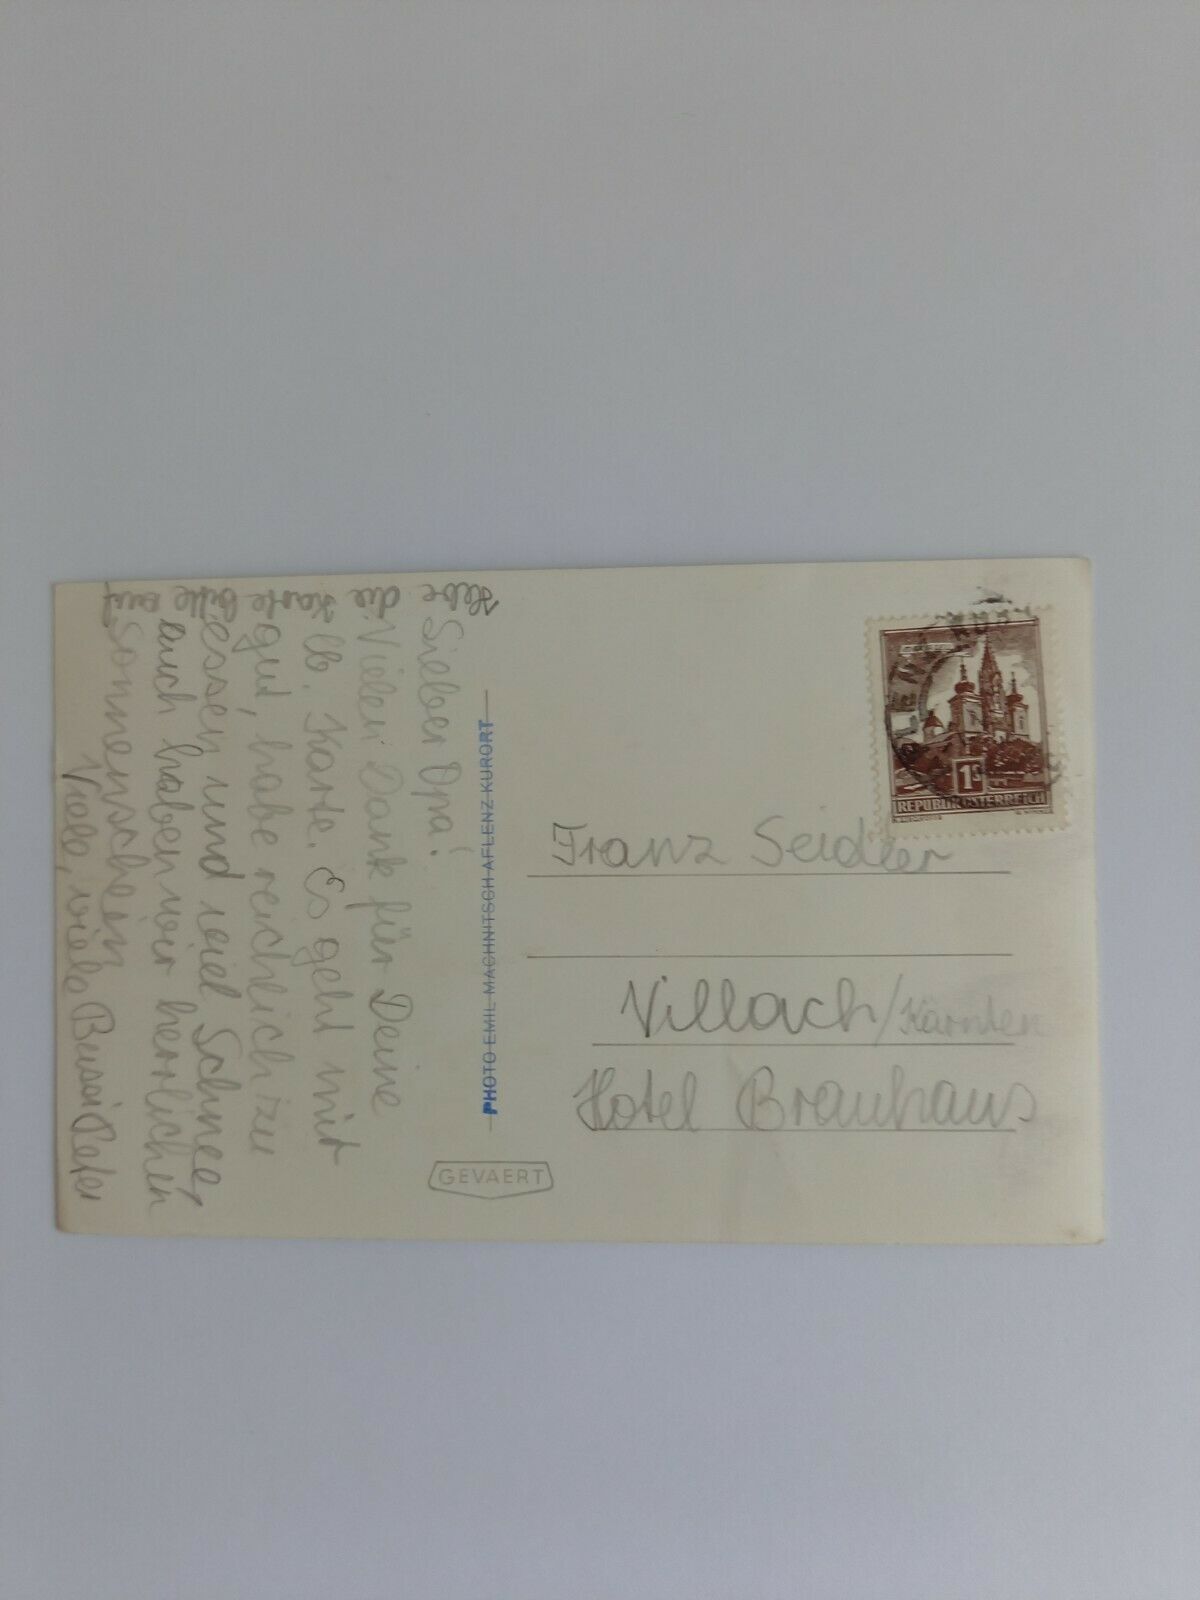 Hebe die Karte bitte auf
Lieber Opa!
Vielen Dank für Deine
lb. Karte. Es geht mir
gut, habe reichlich zu
essen und viel Schnee,
auch haben wir herrlichen
Sonnenschein
Viele, viele Bussi Peter
PHOTO EMIL MACHNITSCH AFLENZ-KURORT
GEVAERT
1S
REPUBLIK ÖSTERREICH
Franz Seidler
Villach/Kärnten
Hotel Brauhaus